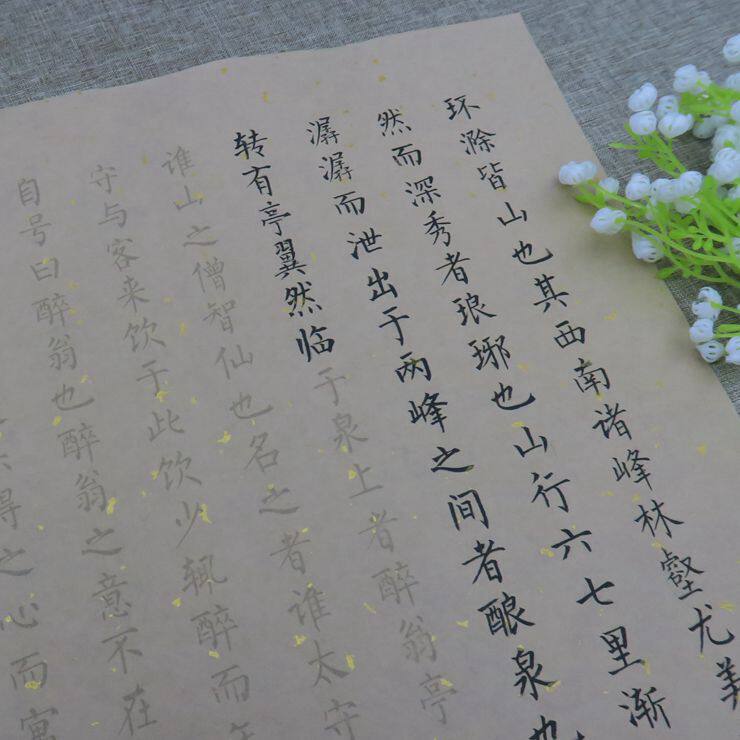 环滁皆山也其西南诸峰林壑尤美
然而深秀者琅琊也山行六七里渐
潺潺而泄出于两峰之间者酿泉也
转有亭翼然临于泉上者醉翁亭
谁山之僧智仙也名之者谁太守
守与客来饮于此饮少辄醉而年
自号曰醉翁也醉翁之意不在
得之心而寓